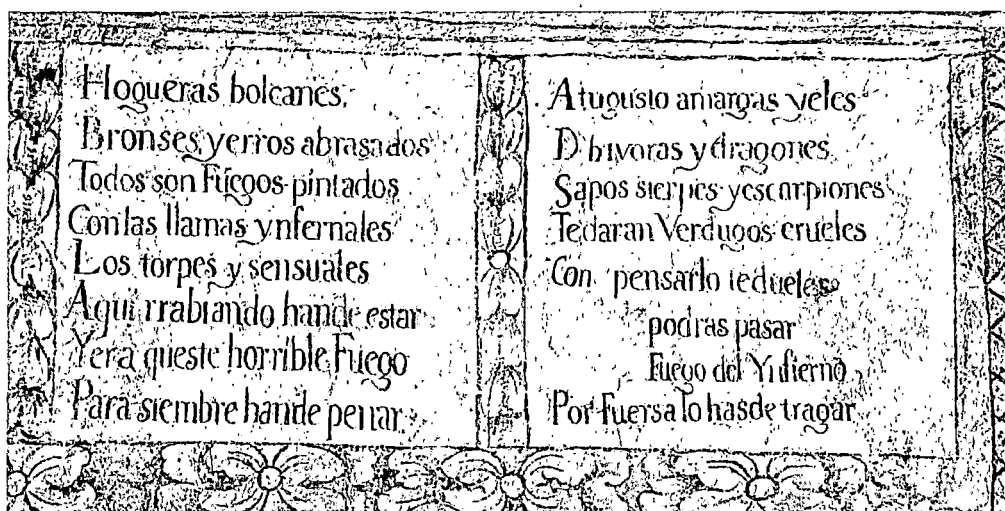 Hogueras bolcanes,
Bronses, yerros abrasados
Todos son Fuegos pintados
Con las llamas ynfernales
Los torpes y sensuales
Aqui rrabiando hande estar
Yera queste horrible Fuego
Para siembre hande penar.
A tugusto amargas yeles
D bivoras y dragones
Sapos sierpes yescorpiones
Tedaran Verdugos crueles
Con pensarlo te dueles
podras pasar
Fuego del Ynfierno
Por Fuersa lo hasde tragar